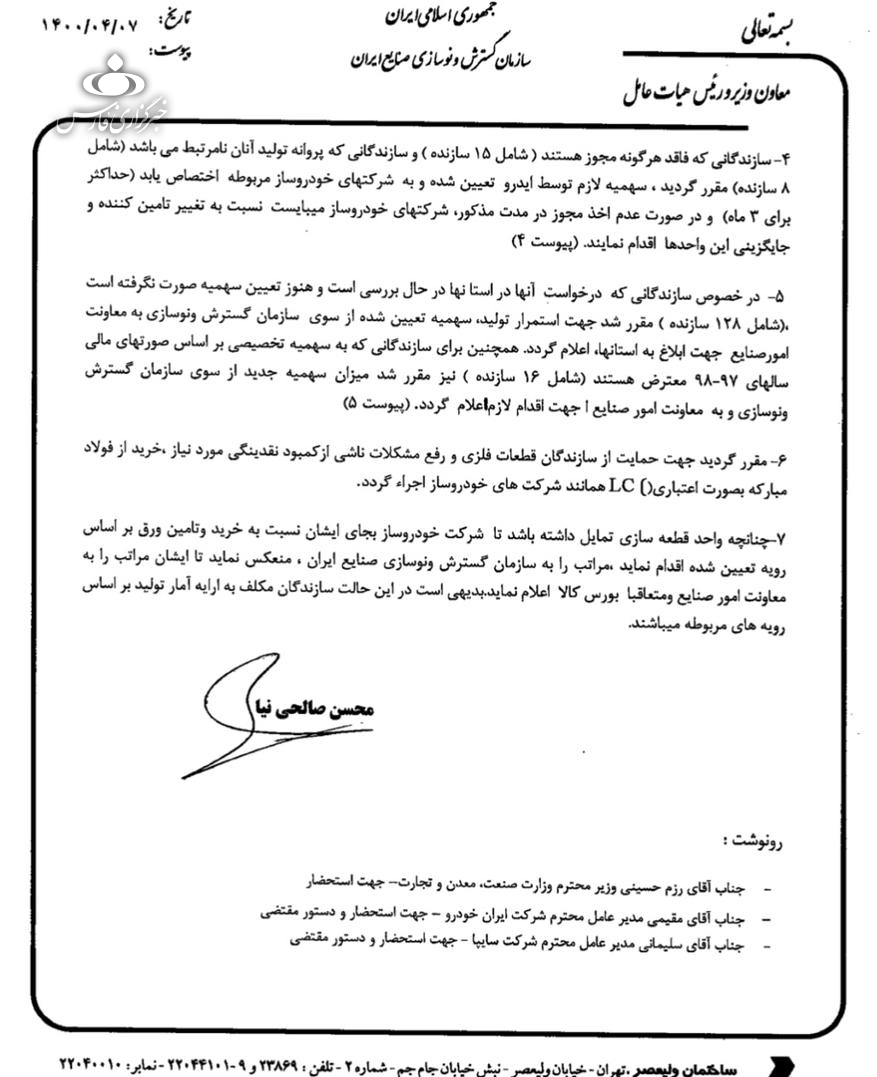 بسمه‌تعالی
جمهوری اسلامی ایران
سازمان گسترش و نوسازی صنایع ایران
معاون وزیر و رئیس هیات عامل
تاریخ: ۱۴۰۰/۰۴/۰۷
پیوست:
خبرگزاری فارس
۴- سازندگانی که فاقد هرگونه مجوز هستند ( شامل ۱۵ سازنده ) و سازندگانی که پروانه تولید آنان نامرتبط می باشد (شامل
۸ سازنده) مقرر گردید ، سهمیه لازم توسط ایدرو تعیین شده و به شرکتهای خودروساز مربوطه اختصاص یابد (حداکثر
برای ۳ ماه) و در صورت عدم اخذ مجوز در مدت مذکور، شرکتهای خودروساز میبایست نسبت به تغییر تامین کننده و
جایگزینی این واحدها اقدام نمایند. (پیوست ۴)
۵- در خصوص سازندگانی که درخواست آنها در استا نها در حال بررسی است و هنوز تعیین سهمیه صورت نگرفته است
،(شامل ۱۲۸ سازنده ) مقرر شد جهت استمرار تولید، سهمیه تعیین شده از سوی سازمان گسترش ونوسازی به معاونت
امورصنایع جهت ابلاغ به استانها، اعلام گردد. همچنین برای سازندگانی که به سهمیه تخصیصی بر اساس صورتهای مالی
سالهای ۹۷-۹۸ معترض هستند (شامل ۱۶ سازنده ) نیز مقرر شد میزان سهمیه جدید از سوی سازمان گسترش
ونوسازی و به معاونت امور صنایع ا جهت اقدام لازم‌اعلام گردد. (پیوست ۵)
۶- مقرر گردید جهت حمایت از سازندگان قطعات فلزی و رفع مشکلات ناشی ازکمبود نقدینگی مورد نیاز ،خرید از فولاد
مبارکه بصورت اعتباری() LC همانند شرکت های خودروساز اجراء گردد.
۷-چنانچه واحد قطعه سازی تمایل داشته باشد تا شرکت خودروساز بجای ایشان نسبت به خرید وتامین ورق بر اساس
رویه تعیین شده اقدام نماید ،مراتب را به سازمان گسترش ونوسازی صنایع ایران ، منعکس نماید تا ایشان مراتب را به
معاونت امور صنایع ومتعاقبا بورس کالا اعلام نماید.بدیهی است در این حالت سازندگان مکلف به ارایه آمار تولید بر اساس
رویه های مربوطه میباشند.
محسن صالحی نیا
رونوشت :
- جناب آقای رزم حسینی وزیر محترم وزارت صنعت، معدن و تجارت– جهت استحضار
- جناب آقای مقیمی مدیر عامل محترم شرکت ایران خودرو – جهت استحضار و دستور مقتضی
- جناب آقای سلیمانی مدیر عامل محترم شرکت سایپا - جهت استحضار و دستور مقتضی
ساختمان ولیعصر ،تهران - خیابان ولیعصر - نبش خیابان جام جم - شماره ۲ - تلفن : ۲۳۸۶۹ و ۹-۲۲۰۴۴۱۰۱ - نمابر: ۲۲۰۴۰۰۱۰